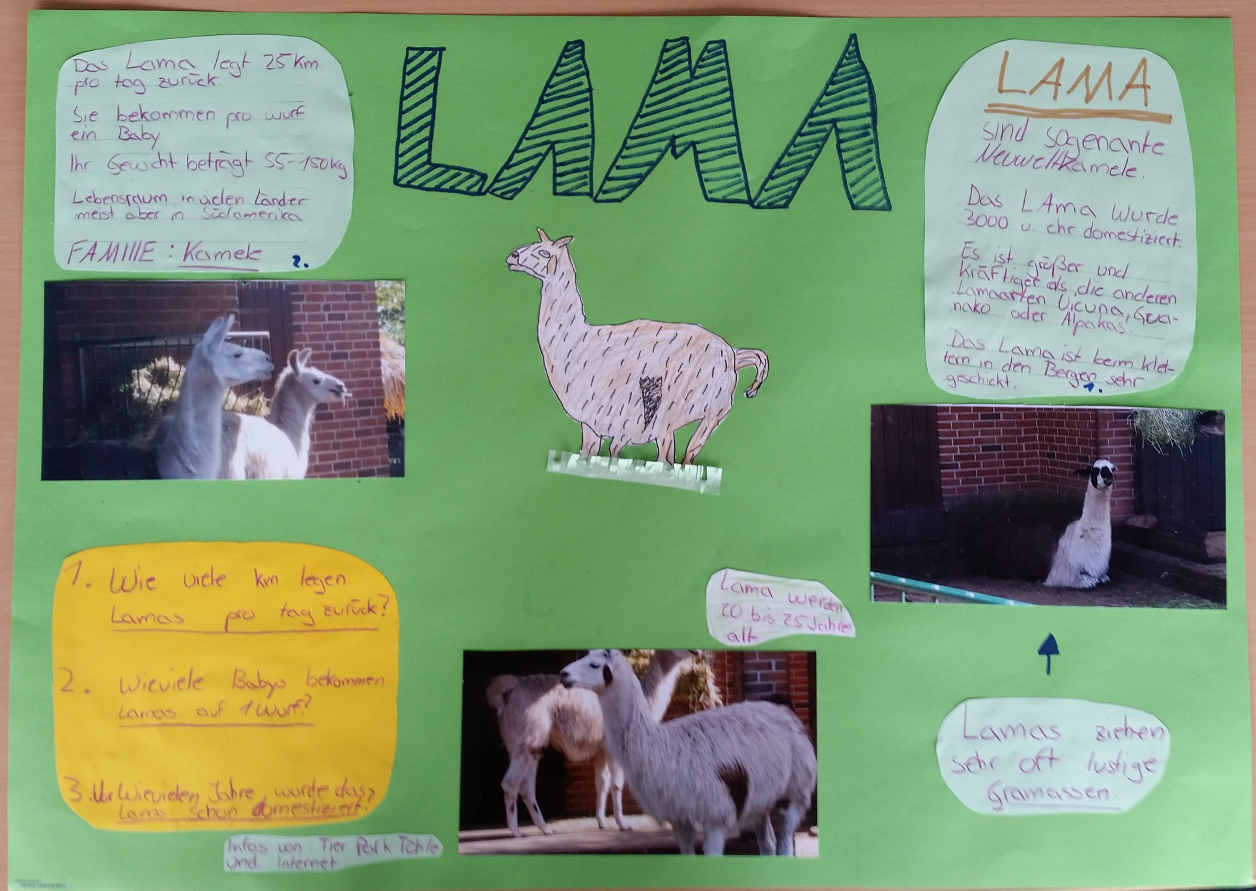 LAMA
Das Lama legt 25 Km
pro tag zurück.
Sie bekommen pro wurf
ein Baby
Ihr Gewicht beträgt 55-150kg
Lebensraum in vielen Länder
meist aber in Südamerika
FAMIlIE : Kamele 2.
LAMA
sind sogenante
Neuweltkamele.
Das LAma wurde
3000 v. chr domestiziert.
Es ist größer und
Kräftiger als die anderen
Lamaarten Vicuna, Gua-
nako oder Alpakas.
Das Lama ist beim klet-
tern in den Bergen sehr
geschickt. 1.
1. Wie viele km legen
Lamas pro tag zurück?
2. Wieviele Babys bekommen
Lamas auf 1 Wurf?
3. Vor Wievielen Jahre wurde das?
Lama schon domestiziert.
Lama werden
20 bis 25 Jahre
alt
Lamas ziehen
sehr oft lustige
Gramassen.
Infos von Tier Park
und Internet